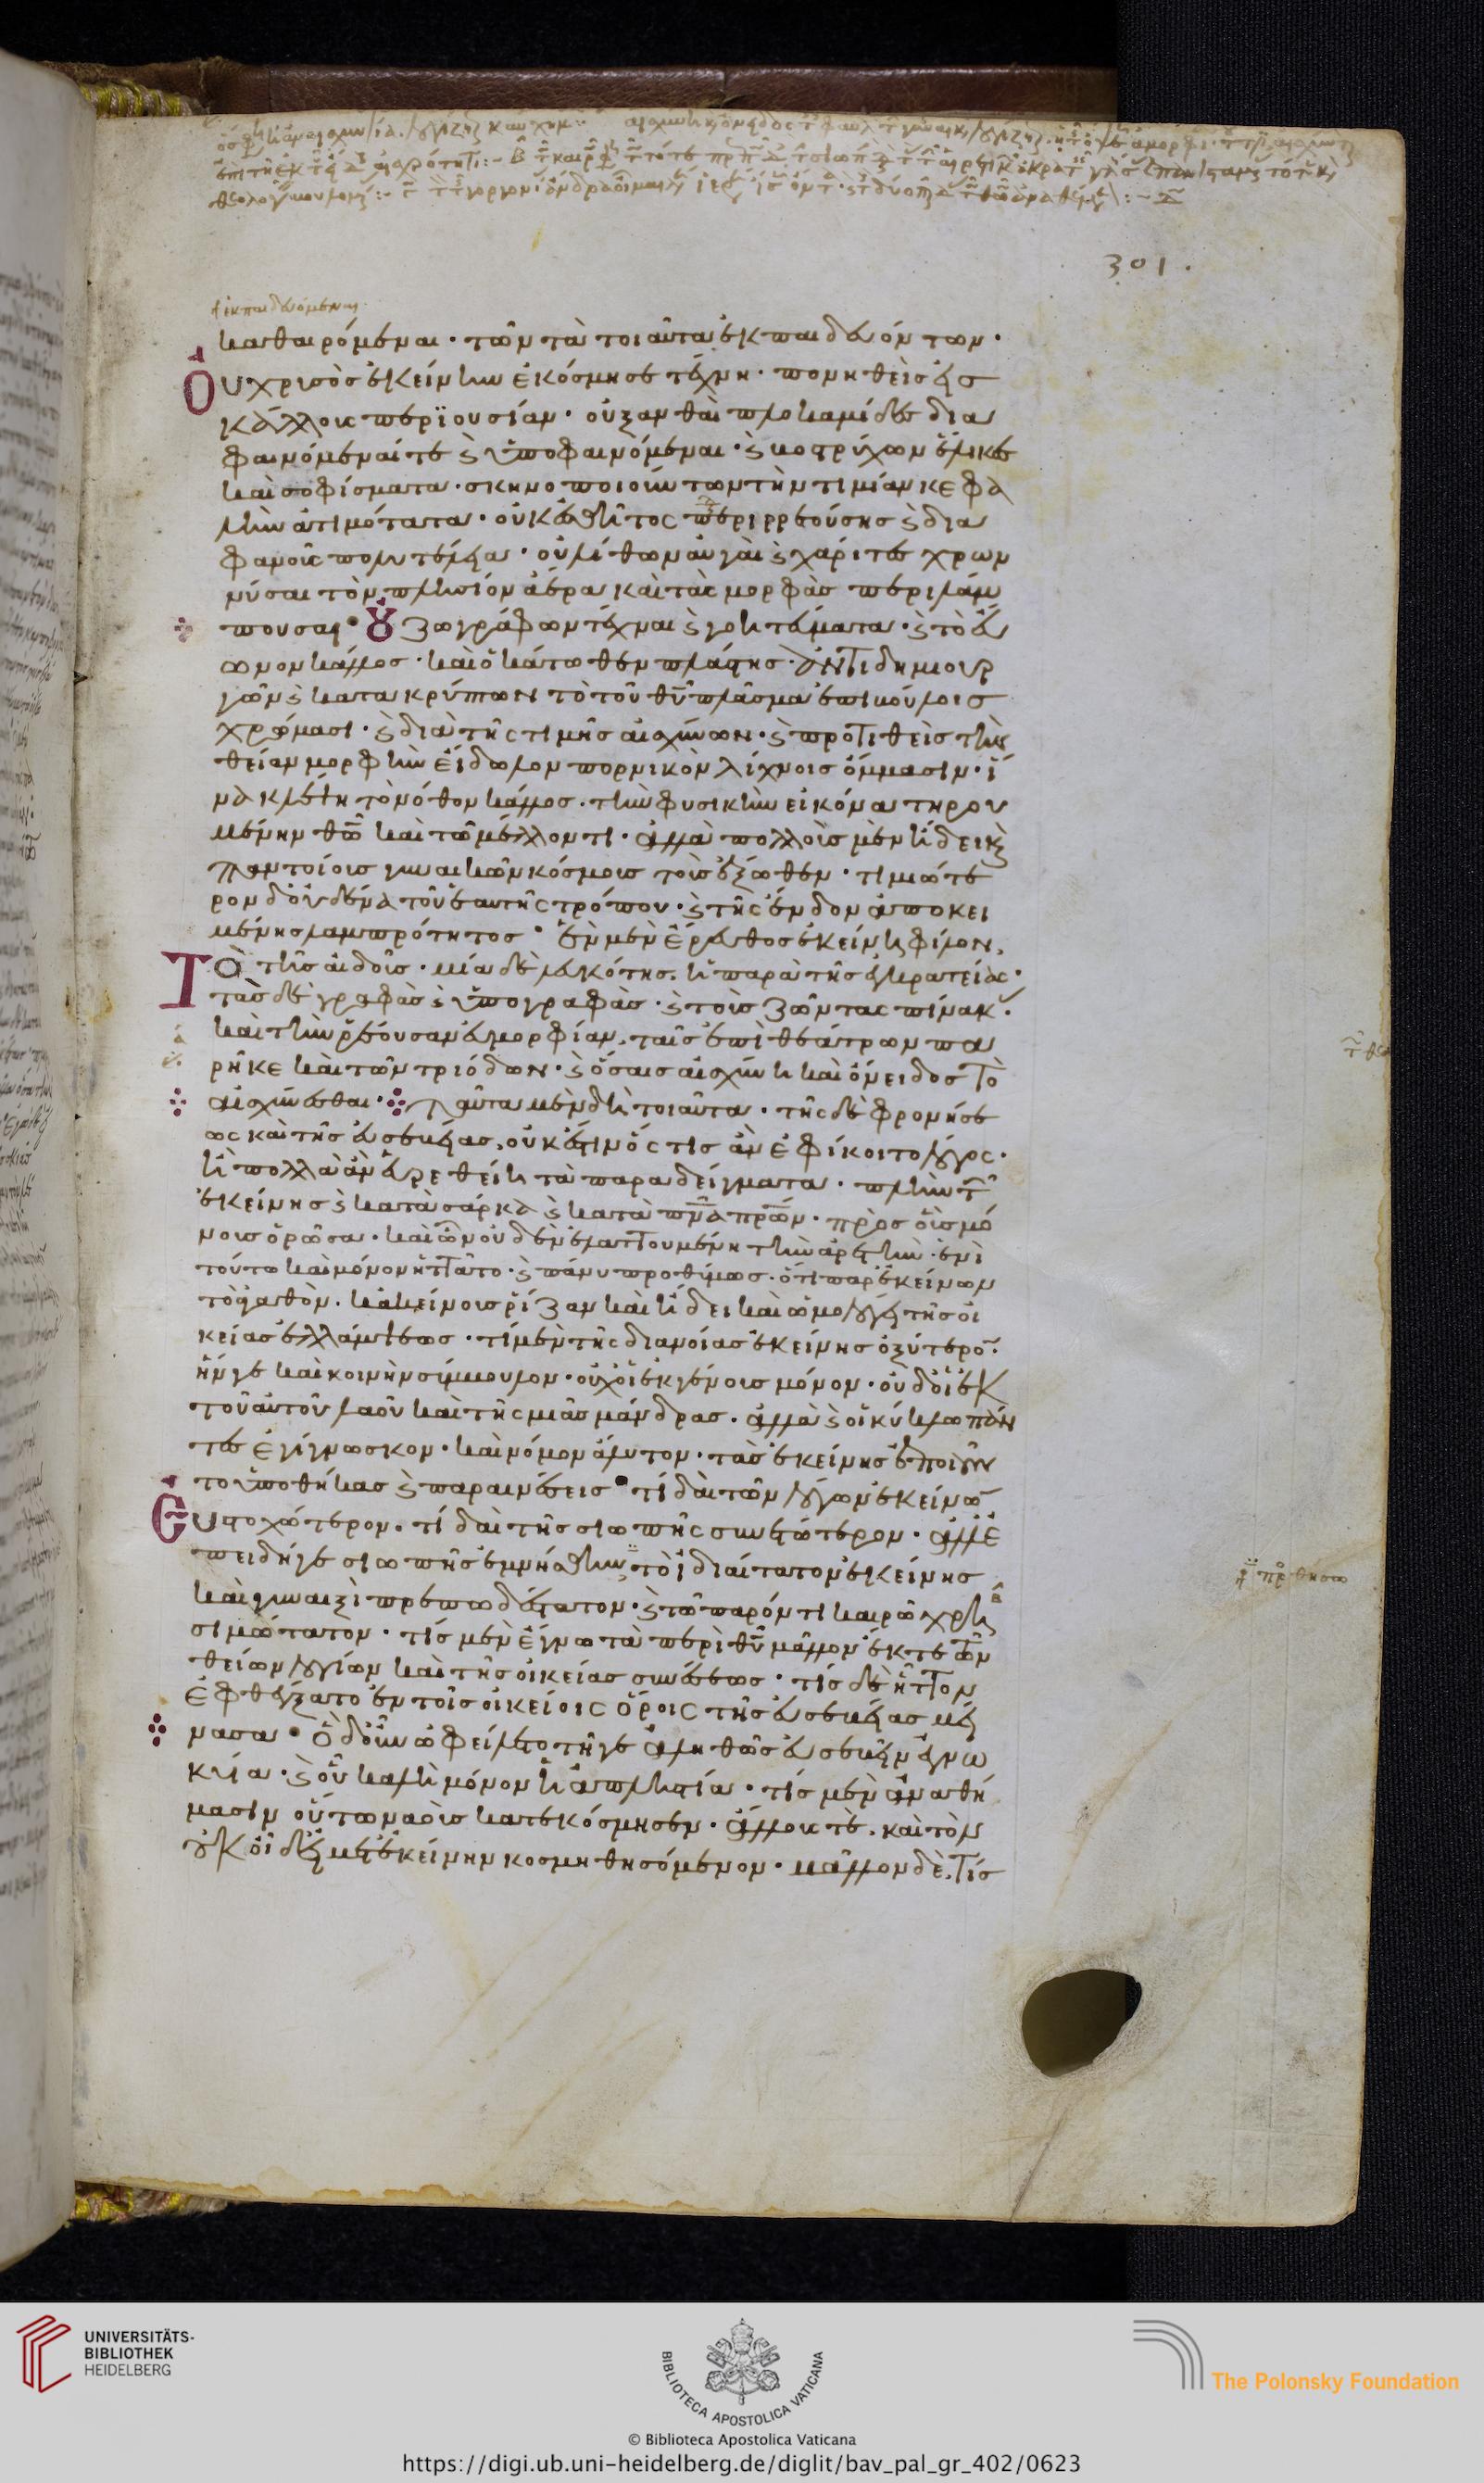 301.
ἐκπαιδευόμεναι
καθαιρόμεναι · τῶν τὰ τοιαῦτα ἐκπαιδευόντων ·
Οὐ χρυσὸς ἐκείνην ἐκόσμησε τέχνη · πονηθεὶς εἰς
κάλλους περϊουσίαν · οὐ ξανθαὶ πλοκαμίδες δια
φαινόμεναί τε ϗ ὑποφαινόμεναι · ϗ βοστρύχων ἕλικες
καὶ σοφίσματα · σκηνοποιούντων τὴν τιμίαν κεφα
λὴν ἀτιμότατα · οὐκ ἐσθῆτος περιρρεούσης ϗ δια
φανοῦς πολυτέλεια · οὐ λίθων αὐγαὶ ϗ χάριτες χρων
νύσαι τὸν πλησίον ἀέρα καὶ τὰς μορφὰς περιλάμ
πουσαι · Οὐ ζωγράφων τέχναι ϗ γοητεύματα · ϗ τὸ εὔ
ωνον κάλλος · καὶ ὁ κάτωθεν πλάστης · ἀντιδημιουρ
γῶν ϗ κατακρύπτων τὸ τοῦ θῦ πλάσμα ἐπιβούλοις
χρώμασι · ϗ διὰ τῆς τιμῆς αἰσχύνων · ϗ προτιθεὶς τὴν
θείαν μορφὴν εἴδωλον πορνικὸν λίχνοις ὄμμασιν · ἵ
να κλέψη τὸ νόθον κάλλος · τὴν φυσικὴν εἰκόνα τηρου
μένην θῶ καὶ τῶ μέλλοντι · ἀλλὰ πολλοὺς μὲν ἤδει ϗ
παντοίους γυναικῶν κόσμους τοὺς ἔξωθεν · τιμιώτε
ρον δ' οὐδένα τοῦ ἑαυτῆς τρόπου · ϗ τῆς ἔνδον ἀποκει
μένης λαμπρότητος · ἓν μὲν ἔρευθος ἐκείνη φίλον,
Τὸ τῆς αἰδοῦς · μία δὲ λευκότης · ἡ παρὰ τῆς ἐγκρατείας ·
τὰς δὲ γραφὰς ϗ ὑπογραφὰς · ϗ τοὺς ζῶντας πίνακ ·
καὶ τὴν ῥέουσαν εὐμορφίαν · ταῖς ἐπὶ θεάτρων πα
ρῆκε καὶ τῶν τριόδων · ϗ ὅσαις αἰσχύνη καὶ ὄνειδος τὸ
αἰσχύνεσθαι · Ταῦτα μὲν δὴ τοιαῦτα · τῆς δὲ φρονήσε
ως καὶ τῆς εὐσεβείας · οὐκ ἔστιν ὅστις ἂν ἐφίκοιτο λόγος ·
ἢ πολλὰ ἂν εὑρεθείη τὰ παραδείγματα · πλὴν τ
ἐκείνης ϗ κατὰ σάρκα ϗ κατὰ πνα πρων · πρὸς οὓς μό
νους ὁρῶσα · καὶ ὧν οὐδὲν ἐλαττουμένη τὴν ἀρετὴν · ἑνὶ
τούτω καὶ μόνον ἡττᾶτο · ϗ πάνυ προθύμως · ὅτι παρ' ἐκείνων
τὸ ἀγαθὸν · κἀκείνους ῥίζαν καὶ ἤδει καὶ ὡμολόγει τῆς οἰ
κείας ἐλλάμψεως · τί μὲν τῆς διανοίας ἐκείνης ὀξύτερο
ἥν γε καὶ κοινὴν σύμβουλον · οὐχ οἱ ἐκ γένους μόνον · οὐδ' οἱ ἐκ
τοῦ αὐτοῦ λαοῦ καὶ τῆς μιᾶς μάνδρας · ἀλλὰ ϗ οἱ κύκλω πάν
τες ἐγίγνωσκον · καὶ νόμον ἄλυτον · τὰς ἐκείνης ἐποιοῦν
το ὑποθήκας ϗ παραινέσεις · τί δαὶ τῶν λόγων ἐκείνω
Εὐστοχώτερον · τί δαὶ τῆς σιωπῆς συνετώτερον · ἀλλ' ἐ
πειδή γε σιωπῆς ἐμνήσθην · τὸ ἰδιαίτατον ἐκείνης
καὶ γυναιξὶ πρεπωδέστατον · ϗ τῶ παρόντι καιρῶ χρη
σιμώτατον · τίς μὲν ἔγνω τὰ περὶ θῦ μᾶλλον ἔκ τε τῶν
θείων λογίων καὶ τῆς οἰκείας συνέσεως · τίς δὲ ἧττον
ἐφθέγξατο ἐν τοῖς οἰκείοις ὅροις τῆς εὐσεβείας μεί
νασα · Ὃ δ' οὖν ὠφείλετο τῆ γε ἀληθῶς εὐσεβεῖν ἐγνω
κυία · ϗ οὗ καλὴ μόνον ἡ ἀπληστία · τίς μὲν ἀναθή
μασιν οὕτω ναοὺς κατεκόσμησεν · ἄλλους τὲ · καὶ τὸν
οὐκ οἶδ' εἰ μετ' ἐκείνην κοσμηθησόμενον · μᾶλλον δὲ · τίς
UNIVERSITÄTS-
BIBLIOTHEK
HEIDELBERG
BIBLIOTECA APOSTOLICA VATICANA
The Polonsky Foundation
© Biblioteca Apostolica Vaticana
https://digi.ub.uni-heidelberg.de/diglit/bav_pal_gr_402/0623